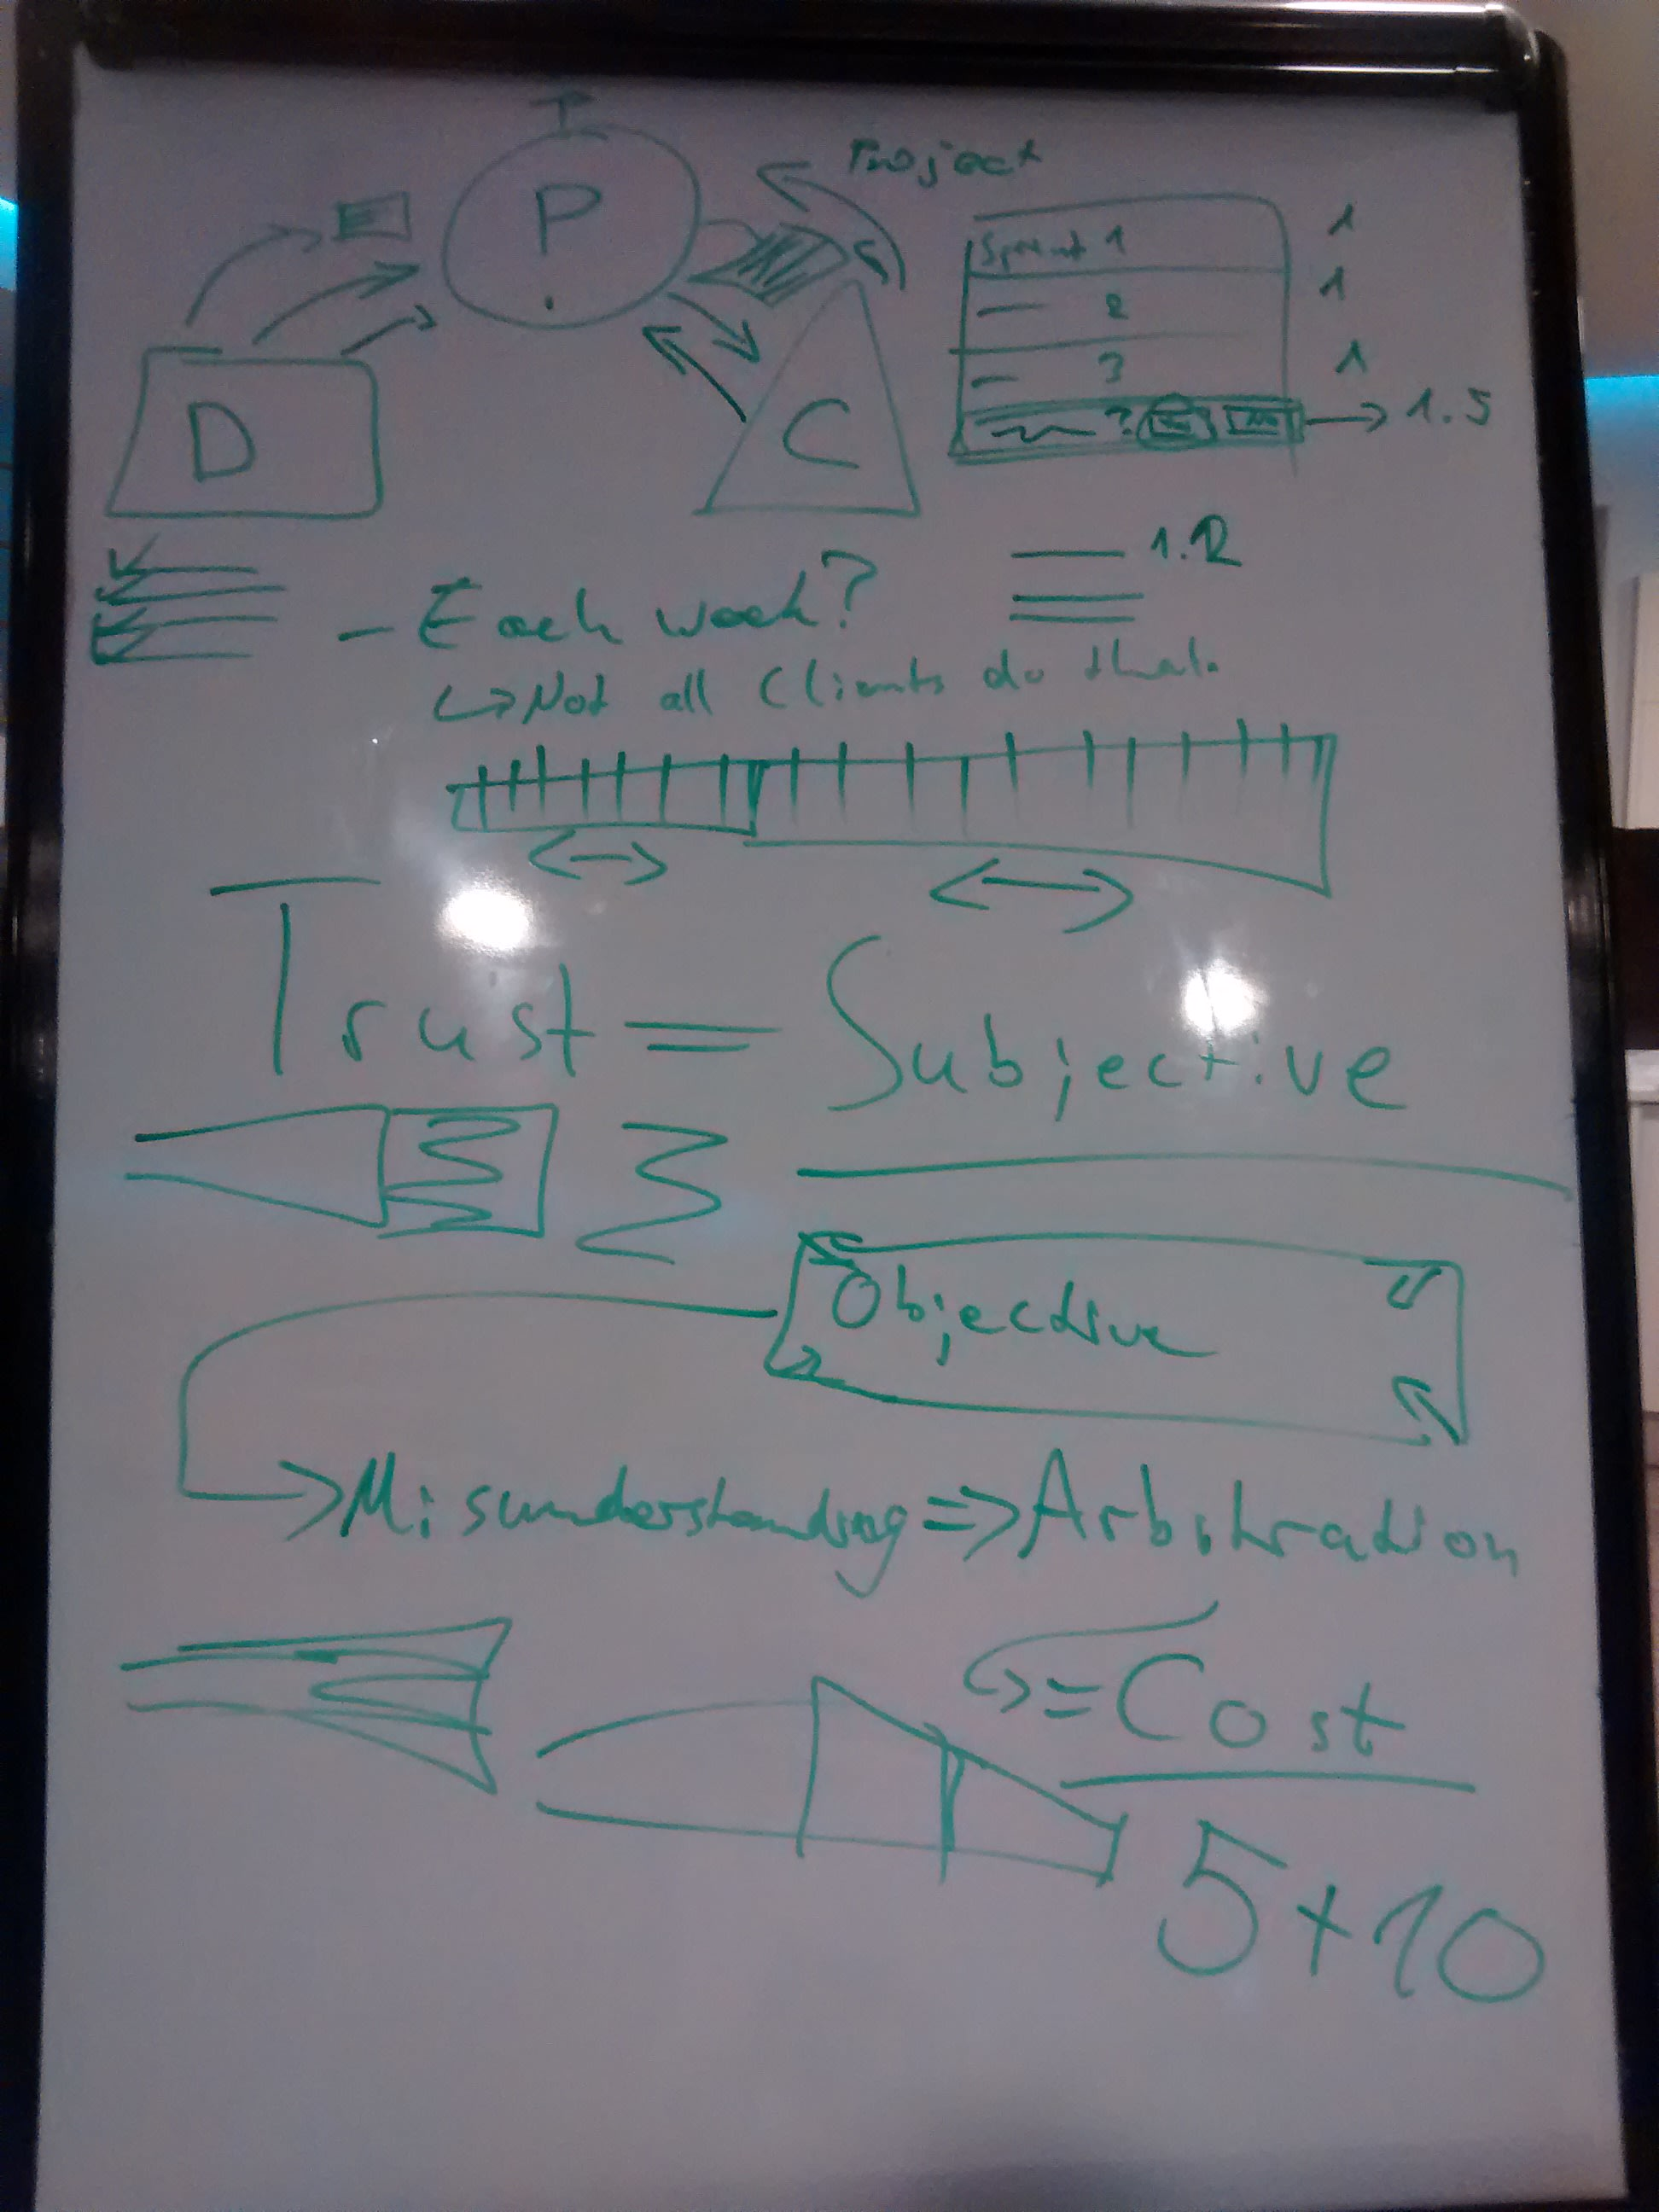 Project
P
Sprint 1 1
2 1
3 1
? → 1.5
D
C
1.2
- Each week?
↳ Not all Clients do that.
Trust = Subjective
Objective
→ Misunderstanding => Arbitration
↳ = Cost
5 + 10